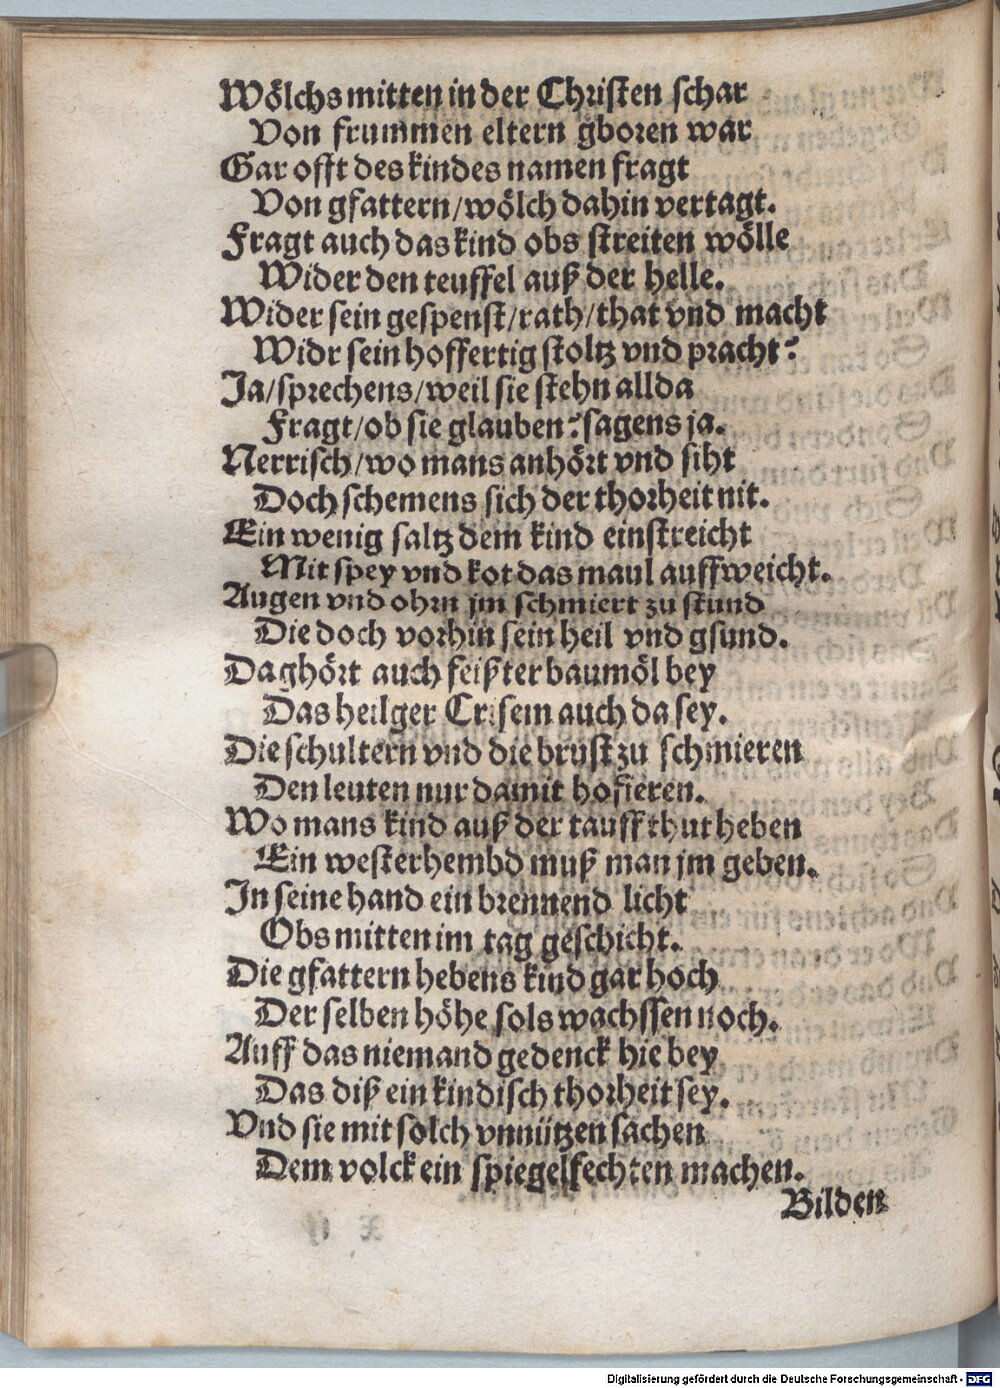 Wölchs mitten in der Christen schar
Von frummen eltern gboren war
Gar offt des kindes namen fragt
Von gfattern/wölch dahin vertagt.
Fragt auch das kind obs streiten wölle
Wider den teuffel auß der helle.
Wider sein gespenst/rath/that vnd macht
Widr sein hoffertig stoltz vnd pracht?
Ja/sprechens/weil sie stehn allda
Fragt/ob sie glauben? sagens ja.
Nerrisch/wo mans anhört vnd siht
Doch schemens sich der thorheit nit.
Ein wenig saltz dem kind einstreicht
Mit spey vnd kot das maul auffweicht.
Augen vnd ohrn jm schmiert zu stund
Die doch vorhin sein heil vnd gsund.
Da ghört auch feißter baumöl bey
Das heilger Crisem auch da sey.
Die schultern vnd die brust zu schmieren
Den leuten nur damit hofieren.
Wo mans kind auß der tauff thut heben
Ein westerhembd muß man jm geben.
In seine hand ein brennend licht
Obs mitten im tag geschicht.
Die gfattern hebens kind gar hoch
Der selben höhe sols wachssen noch.
Auff das niemand gedenck hie bey
Das diß ein kindisch thorheit sey.
Vnd sie mit solch vnnützen sachen
Dem volck ein spiegelfechten machen.
Bilden
Digitalisierung gefördert durch die Deutsche Forschungsgemeinschaft - DFG